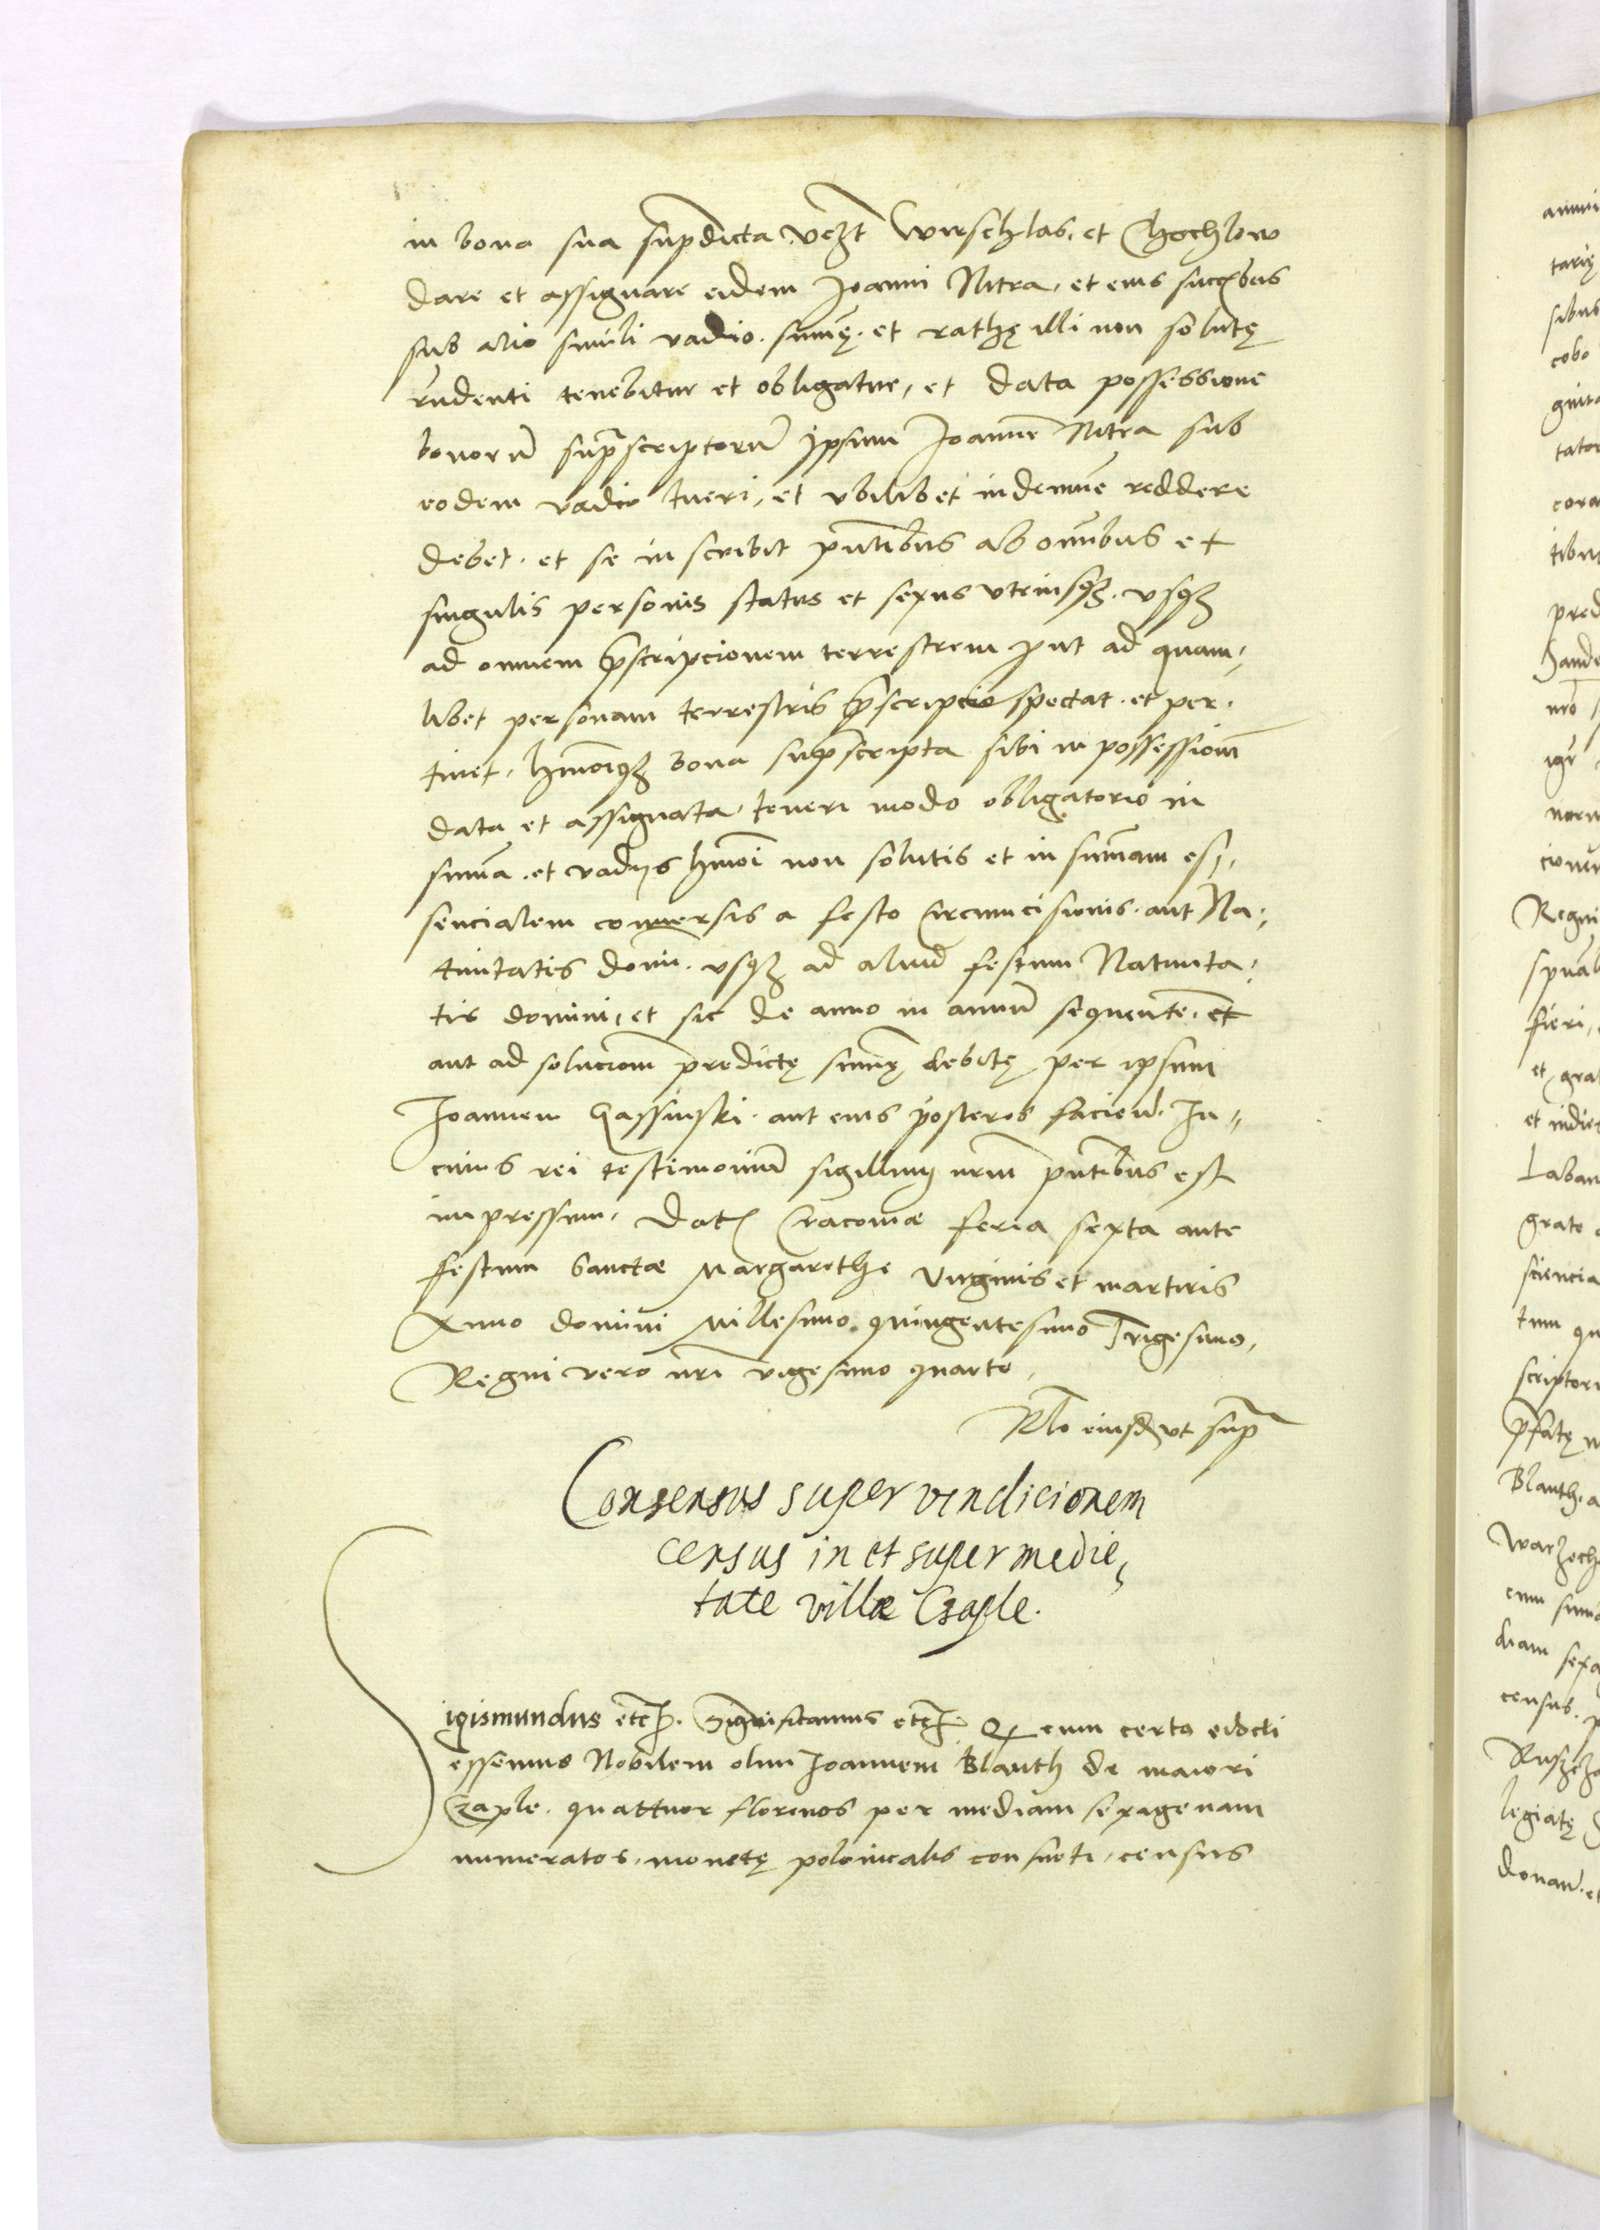 in bona sua supdicta vczt Wirschlas, et Chochlow
dare et assignare eidem Joanni Nitra, et eius succbus
sub alio simili vadio summę et rathę illi non solutę
rndenti tenebitur et obligatur, et data possessione
bonorum suprascriptorum ipsum Joannem Nitra sub
eodem vadio tueri, et vbilibet indemnem reddere
debet. et se inscribit pntibus ab omnibus et
singulis personis status et sexus vtriusqz vsqz
ad omnem pscripcionem terrestrem put ad quam-
libet personam terrestris pscripcio spectat et per-
tinet, hmoiqz bona supscripta sibi in possessionem
data et assignata, teneri modo obligatorio in
summa et vadys hmoi non solutis et in summam es-
sencialem conuersis a festo Circumcisionis aut Na-
tiuitatis domini vsqz ad aliud festum Natiuita-
tis domini, et sic de anno in annum sequentem et
aut ad solucionem predictę summę debitę per ipsum
Joannem Gassinski aut eius posteros faciend. In
cuius rei testimonium sigillum nrm pntibus est
impressum. Dat Cracouiæ feria sexta ante
festum Sanctæ Margarethe Virginis et martiris
Anno domini Millesimo quingentesimo Trigesimo,
Regni vero nri vigesimo quarto.
Rlo eiusd vt sup
Consensus super vendicionem
census in et super medie,
tate villæ Czaple.
Sigismundus etc. Significamus etc. Q cum certo edocti
essemus Nobilem olim Joannem Blanth de maiori
Czaple. quattuor florenos per mediam sexagenam
numeratos, monetę polonicalis consueti, census